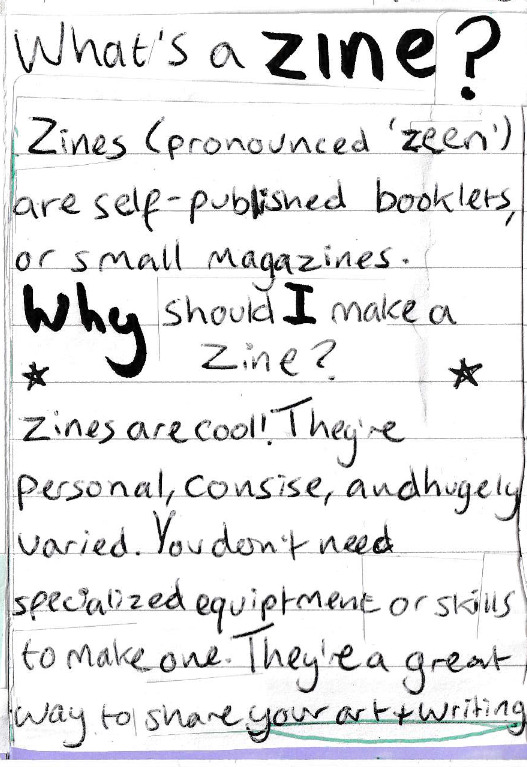 What's a zine?
Zines (pronounced 'zeen')
are self-published booklets,
or small magazines.
Why should I make a
Zine?
Zines are cool! They're
personal, consise, and hugely
varied. You don't need
specialized equiptment or skills
to make one. They're a great
way to share your art + writing